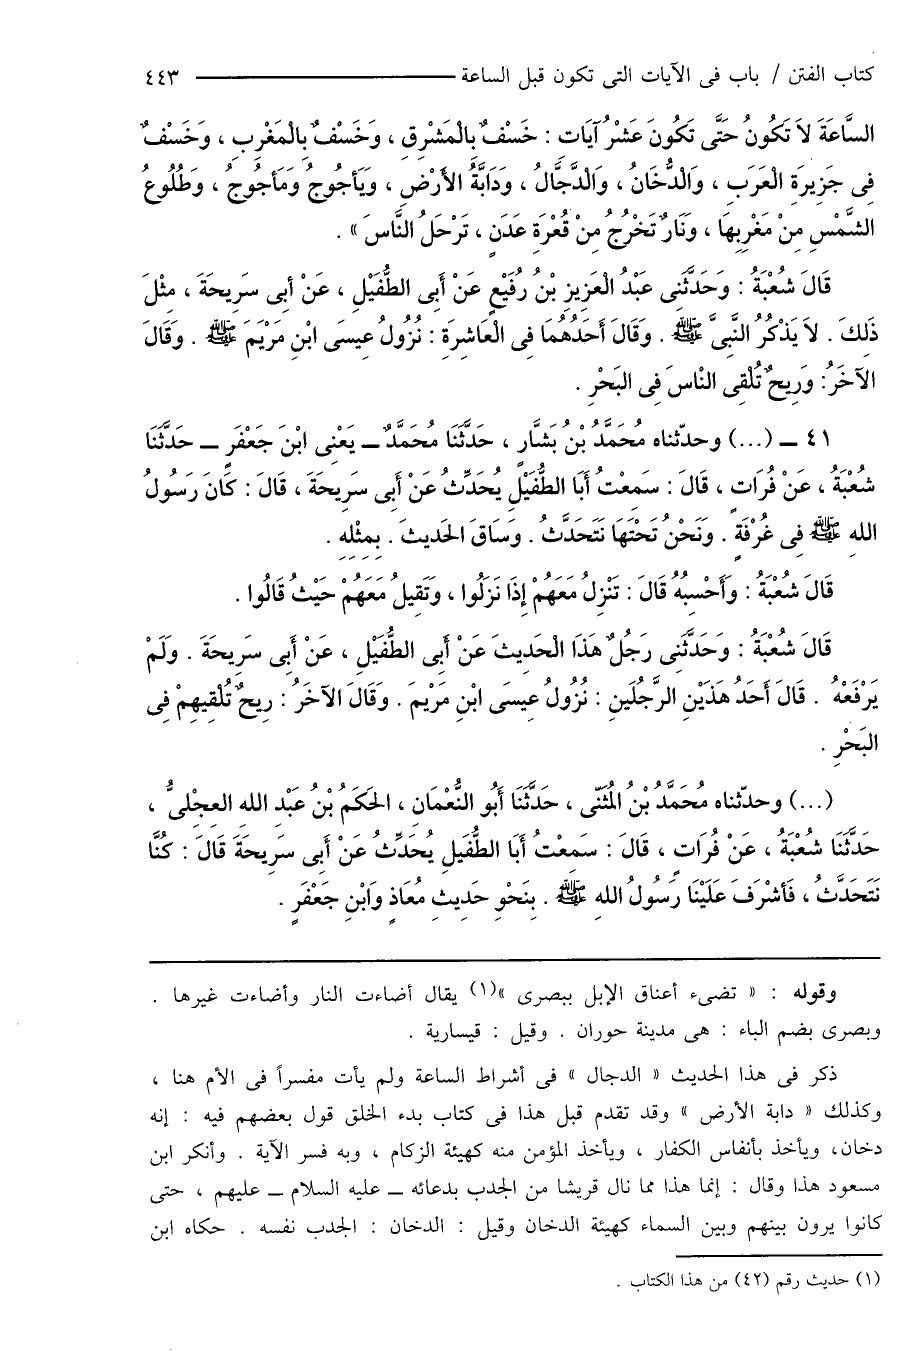 كتاب الفتن / باب فى الآيات التى تكون قبل الساعة ــــــــــ ٤٤٣
السَّاعَةَ لاَ تَكُونُ حَتَّى تَكُونَ عَشْرُ آيَاتٍ : خَسْفٌ بِالْمَشْرِقِ ، وَخَسْفٌ بِالْمَغْرِبِ ، وَخَسْفٌ
فِى جَزِيرَةِ الْعَرَبِ ، وَالدُّخَانُ ، وَالدَّجَّالُ ، وَدَابَّةُ الأَرْضِ ، وَيَأجُوجُ وَمَأجُوجُ ، وَطُلُوعُ
الشَّمْسِ مِنْ مَغْرِبِهَا ، وَنَارٌ تَخْرُجُ مِنْ قُعْرَةِ عَدَنٍ ، تَرْحَلُ النَّاسَ » .
قَالَ شُعْبَةُ : وَحَدَّثَنِى عَبْدُ الْعَزِيزِ بْنُ رُفَيْعٍ عَنْ أَبِى الطُّفَيْلِ ، عَنْ أَبِى سَرِيحَةَ ، مِثْلَ
ذَلِكَ . لاَ يَذْكُرُ النَّبِىَّ ﷺ . وَقَالَ أَحَدُهُمَا فِى الْعَاشِرَةِ : نُزُولُ عِيسَى ابْنِ مَرْيَمَ ﷺ . وَقَالَ
الآخَرُ: وَرِيحٌ تُلْقِى النَّاسَ فِى البَحْرِ .
٤١ ــ (...) وحدّثناه مُحَمَّدُ بْنُ بَشَّارٍ ، حَدَّثَنَا مُحَمَّدٌ ــ يَعْنِى ابْنَ جَعْفَرٍ ــ حَدَّثَنَا
شُعْبَةُ ، عَنْ فُرَاتٍ ، قَالَ : سَمِعْتُ أَبَا الطُّفَيْلِ يُحَدِّثُ عَنْ أَبِى سَرِيحَةَ ، قَالَ : كَانَ رَسُولُ
اللهِ ﷺ فِى غُرْفَةٍ . وَنَحْنُ تَحْتَهَا نَتَحَدَّثُ . وَسَاقَ الحَدِيثَ . بِمِثْلِهِ .
قَالَ شُعْبَةُ : وَأَحْسِبُهُ قَالَ : تَنْزِلُ مَعَهُمْ إِذَا نَزَلُوا ، وَتَقِيلُ مَعَهُمْ حَيْثُ قَالُوا .
قَالَ شُعْبَةُ : وَحَدَّثَنِى رَجُلٌ هَذَا الْحَدِيثَ عَنْ أَبِى الطُّفَيْلِ ، عَنْ أَبِى سَرِيحَةَ . وَلَمْ
يَرْفَعْهُ . قَالَ أَحَدُ هَذَيْنِ الرَّجُلَيْنِ : نُزُولُ عِيسَى ابْنِ مَرْيَمَ . وَقَالَ الآخَرُ : رِيحٌ تُلْقِيهِمْ فِى
البَحْرِ .
(...) وحدّثناه مُحَمَّدُ بْنُ الْمُثَنَّى ، حَدَّثَنَا أَبُو النُّعْمَانِ ، الحَكَمُ بْنُ عَبْدِ اللهِ العِجْلِىُّ ،
حَدَّثَنَا شُعْبَةُ ، عَنْ فُرَاتٍ ، قَالَ : سَمِعْتُ أَبَا الطُّفَيْلِ يُحَدِّثُ عَنْ أَبِى سَرِيحَةَ قَالَ : كُنَّا
نَتَحَدَّثُ ، فَأَشْرَفَ عَلَيْنَا رَسُولُ اللهِ ﷺ . بِنَحْوِ حَدِيثِ مُعَاذٍ وَابْنِ جَعْفَرٍ .
وقوله : « تضىء أعناق الإبل ببصرى »(١) يقال أضاءت النار وأضاءت غيرها .
وبصرى بضم الباء : هى مدينة حوران . وقيل : قيسارية .
ذكر فى هذا الحديث « الدجال » فى أشراط الساعة ولم يأت مفسراً فى الأم هنا ،
وكذلك « دابة الأرض » وقد تقدم قبل هذا فى كتاب بدء الخلق قول بعضهم فيه : إنه
دخان، ويأخذ بأنفاس الكفار ، ويأخذ المؤمن منه كهيئة الزكام ، وبه فسر الآية . وأنكر ابن
مسعود هذا وقال : إنما هذا مما نال قريشا من الجدب بدعائه ــ عليه السلام ــ عليهم ، حتى
كانوا يرون بينهم وبين السماء كهيئة الدخان وقيل : الدخان : الجدب نفسه . حكاه ابن
(١) حديث رقم (٤٢) من هذا الكتاب .